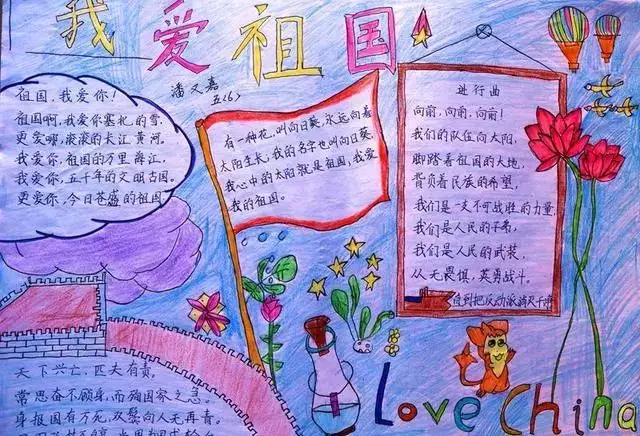 我爱祖国
潘又嘉
五(6)
祖国,我爱你!
祖国啊,我爱你塞北的雪,
更爱哪,滚滚的长江黄河。
我爱你,祖国的万里江,
我爱你,五千年的文明古国。
更爱你,今日苍盛的祖国
有一种花,叫向日葵,永远向着
太阳生长,我的名字也叫向日葵,
我心中的太阳就是祖国,我爱
我的祖国。
进行曲
向前,向前,向前!
我们的队伍向太阳,
脚踏着祖国的大地,
背负着民族的希望,
我们是一支不可战胜的力量,
我们是人民的子弟,
我们是人民的武装,
从无畏惧,英勇战斗。
直到把反动派消灭干净
天下兴亡,匹夫有责,
常思奋不顾身,而殉国家之急。
身报国有万死,双鬓向人无再青。
Love China